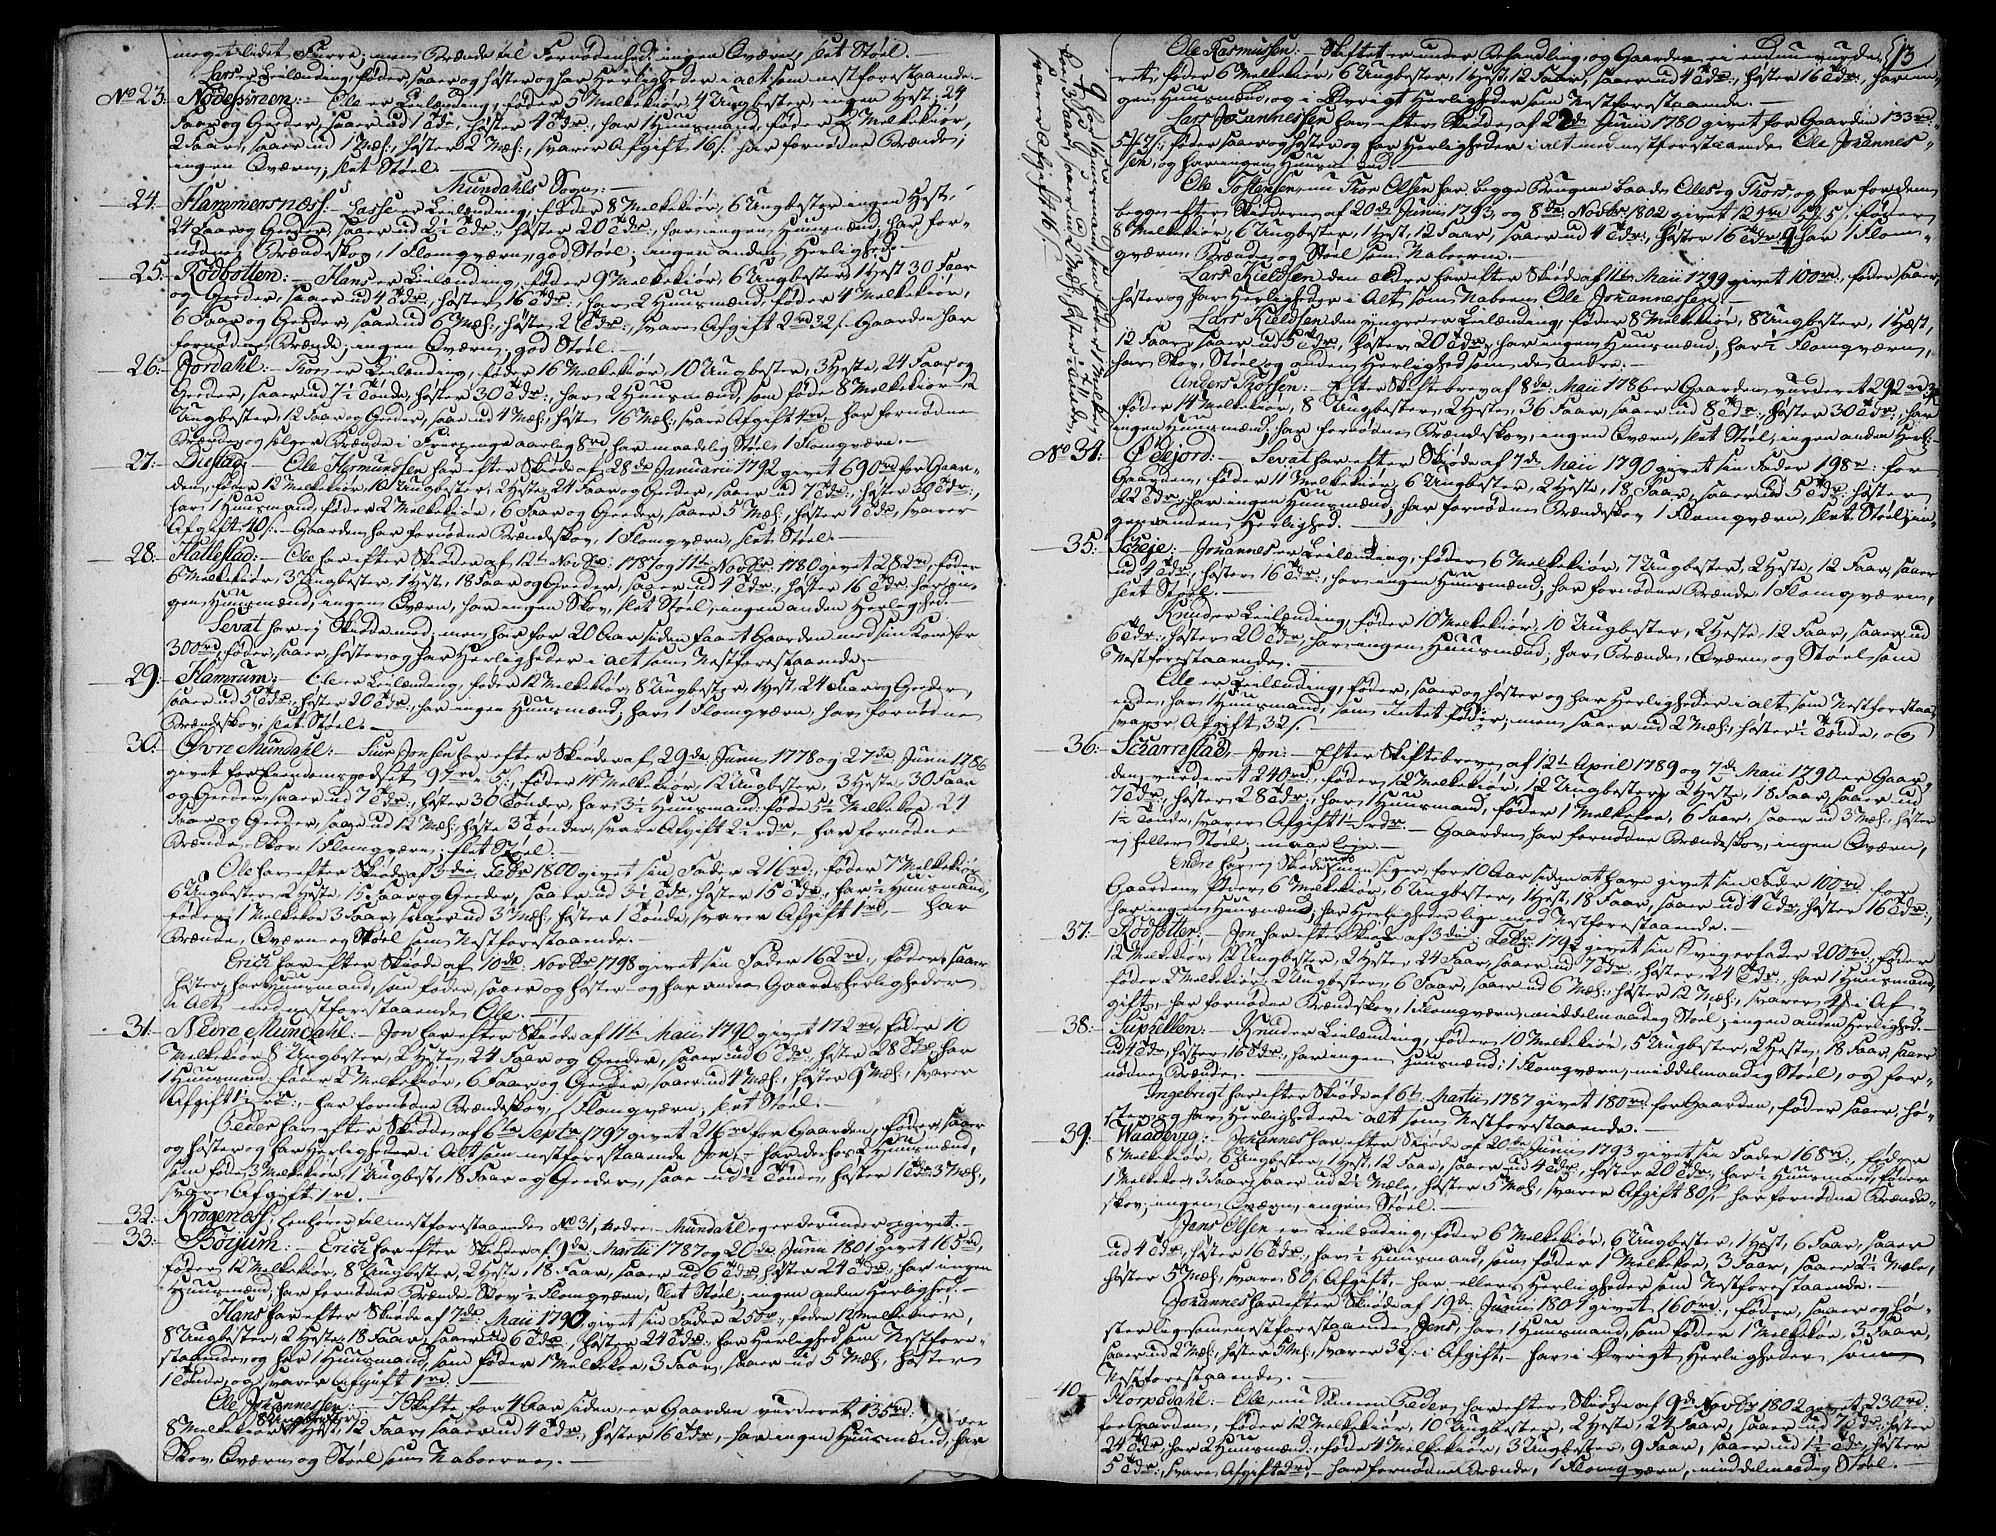 meget lidet Furre, men Brænde til Fornødenhed, ingen Qværn, slet Støel.
Lars er Leilænding, føder, saaer og høster og har Herligheder i alt som nestforestaaende.
No 23. Nødeström:- Ole er Leilænding, føder 5 Melkekiør, 4 Ungbester, ingen Hest, 24
Faar og Geeder, saaer ud 1 Tde, høster 4 Tdr:, har 1 Huusmand, føder 2 Melkekiør,
2 Faar, saaer ud 1 Mæl:, høster 2 Mæl:, svarer Afgift 16 s: har fornødne Brænde,
ingen Qværn, slet Støel.
Mundahls Sogn:-
24. Hammersnæss:- Lasse er Leilænding, føder 8 Melkekiør, 6 Ungbester ingen Hest,
24 Faar og Geeder, saaer ud 2½ Tdr:, høster 20 Tdr:, har ingen Huusmænd, har for-
nødne Brændeskov, 1 Flomqværn, god Støel, ingen anden Herlighed.
25. Rödbotten:- Hans er Leilænding, føder 9 Melkekiør, 6 Ungbester, 1 Hest 30 Faar
og Geeder, saaer ud 4 Tdr:, høster 16 Tdr:, har 2 Huusmænd, føder 4 Melkekiør,
6 Faar og Geeder, saae ud 6 Mæl:, høster 2 Tdr:, svare Afgift 2 rd 32 s. Gaarden har
fornødne Brænde, ingen Qværn, god Støel.
26. Jordahl:- Thor er Leilænding, føder 16 Melkekiør, 10 Ungbester, 3 Heste, 24 Faar og
Geeder, saaer ud 7½ Tönde, høster 30 Tdr:, har 2 Huusmænd, som føde 8 Melkekiør 2
Ungbester, 12 Faar og Geeder, saae ud 4 Mæl:, høste 16 Mæl:, svare Afgift 4 rd, har fornødne
Brænde, og sælger Brænde i Freepenge aarlig 8 rd, har maadelig Støel, 1 Flomqværn.
27. Distad:- Ole Hermundsen har efter Skiøde af 28de Januarii 1792 givet 690 rd for Gaar-
den, føder 12 Melkekiør, 10 Ungbester, 2 Heste, 24 Faar og Geeder, saaer ud 7 Tdr:, høster 30 Tdr:,
har 1 Huusmand, føder 2 Melkekiør, 6 Faar og Geeder, saaer 5 Mæl:, høster 1 Tde, svarer
Afgift 40 s. Gaarden har fornødne Brændeskov, 1 Flomqværn, slet Støel.
28. Hattestad:- Ole har efter Skiøder af 12te Novbr: 1787 og 11te Novbr: 1780 givet 282 rd, føder
6 Melkekiør, 3 Ungbester, 1 Hest, 18 Faar og Geeder, saaer ud 4 Tdr:, høster 16 Tdr: har in-
gen Huusmænd, ingen Qværn, har ingen Skov, slet Støel, ingen anden Herlighed.
Sevat har ej Skiøde med, men har for 20 Aar siden faaet Gaarden med sin Kone for
300 rd, føder, saaer, høster og har Herligheder i alt som Nestforestaaende.
29. Hamrum:- Ole er Leilænding, føder 12 Melkekiør, 8 Ungbester, 1 Hest, 24 Faar og Geeder
saaer ud 5 Tdr:, høster 20 Tdr:, har ingen Huusmænd, har 1 Flomqværn, har fornødne
Brændeskov, slet Støel.
30. Øvre Mundahl:- Siur Jonsen har efter Skiøder af 29de Junii 1778 og 27de Junii 1786
givet for Eiendomsgodset 97 rd 5 s:, føder 14 Melkekiør, 12 Ungbester, 3 Heste, 30 Faar
og Geeder, saaer ud 7 Tdr:, høster 30 Tønder, har 3½ Huusmænd: føde 5½ Melkekoe 24
Faar og Geeder, saae ud 12 Mæl: høste 3 Tønder, svare Afgift 2½ rdr, har fornødne
Brænde-Skov 1 Flomqværn, slet Støel.
Ole har efter Skiøde af 3die Febr 1800 givet sin Fader 216 rd:, føder 7 Melkekiør
6 Ungbester, 2 Heste, 15 Faar og Geeder, saaer ud 3½ Tdr, høster 15 Tdr:, har ½ Huusmand,
føder 1 Melkekoe 3 Faar, saaer ud 3 Mæl: høster 1 Tønde, svarer Afgift 1 rd, har
Brænde, Qværn og Støel som Nestforestaaende.
Erich har efter Skiøde af 10de: Novbr 1798 givet sin Fader 162 rd:, føder, saaer
høster, har Huusmand, som føder, saaer og høster og har andre Gaardsherligheder
i Alt med nestforestaaende Ole.
31. Nedre Mundahl:- Jon har efter Skiøde af 11te Maii 1790 givet 172 rd, føder 10
Melkekiør, 8 Ungbester, 2 Heste, 24 Faar og Geeder, saaer ud 6 Tdr:, høster 28 Tdr, har
1 Huusmand: føder 2 Melkekiør, 6 Faar og Geeder, saaer ud 4 Mæl:, høster 9 Mæl:, svarer
Afgift 1½ rdr:, har fornødne Brændeskov, 1 Flomqværn, slet Støel.
Peder har efter Skiøde af 6te Septr 1797 givet 216 rd for Gaarden, føder, saaer
og høster og har Herligheder i Alt som nestforestaaende Jon, har derhos 2 Huusmænd,
som føder 3 Melkekiør, 1 Ungbest, 18 Faar og Geeder, saae ud ½ Tønde, høster 1 Tde 3 Mæl,
svare Afgift 1 rd.
32. Krogenæss, henhører til nestforestaaende No 31, Nedre Mundahl og er derunder opgivet.
33. Böijum:- Erich har efter Skiøder af 9de Martii 1787 og 20de Junii 1801 givet 165 rd,
føder 12 Melkekiør, 8 Ungbester, 2 Heste, 18 Faar, saaer ud 6 Tdr, høster 24 Tdr:, har ingen
Huusmænd, har fornødne Brænde-Skov ½ Flomqværn, slet Støel, ingen anden Herlighed.
Hans har efter Skiøde af 7de: Maii 1790 givet sin Fader 25 rd:, føder 12 Melkekiør,
8 Ungbester, 2 Heste, 18 Faar, saaer ud 6 Tdr:, høster 24 Tdr:, har Herlighed som Nestfore-
staaende, og har 1 Huusmand, som føder 1 Melkekoe, 3 Faar, saaer ud 5 Mæl:, høster
1 Tønde, og svarer Afgift 1 rd.
Ole Johannessen:- I Skifte for 4 Aar siden, er Gaarden vurderet 135 rd:,
8 Melkekiør 8 Ungbester 1 Hest, 12 Faar, saaer ud 4 Tdr:, høster 16 Tdr:, har ingen Huusmænd, har
Skov, Qværn og Støel som Naboerne.
13
Ole Rasmussen:- Skiftet er under Behandling, og Gaarden ei endnu vurde-
ret, føder 6 Melkekiør, 6 Ungbester, 1 Hest, 12 Faar, saaer ud 4 Tdr:, høster 16 Tdr:, har in-
gen Huusmænd, og i Øvrigt Herligheder som Nestforestaaende.
Lars Johannessen har efter Skiøde af 22de Junii 1780 givet for Gaarden 133 rd
føder, saaer og høster og har Herligheder i alt med nestforestaaende Ole Johannes-
sen, og har ingen Huusmænd.
Ole Tostensen, nu Thor Olsen har begge Brugene baade Oles og Thors, og har for dem
begge efter Skiøderne af 20de Junii 1793, og 8de Novbr 1802 givet føder
8 Melkekiør, 6 Ungbester, 1 Hest, 12 Faar, saaer ud 4 Tdr:, høster 16 Tdr har 1 Flom-
qværn, Brænde og Støel som Naboerne.
9 har Huusmand, som føder 1 Melkekoe, 3 Faar, saaer ud 2 Mæl:, høster ½ Tønde,
svarer Afgift 16 s.
Lars Kieldsen den eldre har efter Skiøde af 11te Maii 1799 givet 100 rd, føder, saaer,
høster og har Herligheder i Alt som Naboen Ole Johannessen.
Lars Kieldsen den yngre er Leilænding, føder 8 Melkekiør, 8 Ungbester, 1 Hæst,
12 Faar, saaer ud 5 Tdr:, høster 20 Tdr, har ingen Huusmænd, har ½ Flomqværn,
har Skov, Støel og anden Herlighed som de andre.
Anders Thorsen:- Efter Skiftebrev af 8de Maii 1786 er Gaarden vurderet 292 rd
føder 14 Melkekiør, 8 Ungbester, 2 Heste, 36 Faar, saaer ud 8 Tdr:, høster 30 Tdr:, har
ingen Huusmænd, har fornødne Brændeskov, ingen Qværn, slet Støel, ingen anden Herl-
No 34. Ødejord:- Sevat har efter Skiøde af 7de Maii 1790 givet sin Fader 198 rd: for
Gaarden, føder 11 Melkekiør, 6 Ungbester, 2 Heste, 18 Faar, saaer ud 5 Tdr: høster
22 Tdr, har ingen Huusmænd, har fornødne Brændeskov 1 Flomqværn, slet Støel, in-
gen anden Herlighed.
35. Scheje:- Johannes er Leilænding, føder 6 Melkekiør, 7 Ungbester, 2 Heste, 12 Faar, saaer
ud 4 Tdr:, høster 16 Tdr:, har ingen Huusmænd, har fornødne Brænde 1 Flomqværn,
slet Støel.
Knud er Leilænding, føder 10 Melkekiør, 10 Ungbester, 2 Heste, 12 Faar, saaer ud
6 Tdr:, høster 20 Tdr, har ingen Huusmænd, har Brænde, Qværn og Støel som
Nestforestaaende.
Ole er Leilænding, føder, saaer og høster og har Herligheder i alt som Nestforestaa-
ende, har 1 Huusmand, som Intet føder, men saaer ud 2 Mæl:, høster ½ Tønde, og
svarer Afgift 32 s.
36. Scharrestad:- Jon: Efter Skiftebreve af 12te April 1789 og 7de Maii 1790 er Gaar-
den vurderet 240 rd:, føder 12 Melkekiør, 12 Ungbester, 2 Heste, 18 Faar, saaer ud
7 Tdr:, høster 28 Tdr:, har 1 Huusmand, føder 1 Melkekoe, 6 Faar, saaer ud 3 Mæl: høster
1½ Tønde, svarer Afgift 1½ rdr. Gaarden har fornødne Brændeskov, ingen Qværn,
ej heller Støel, maae leje.
Endre har ej Skiøde med men siger, for 10 Aar siden at have givet sin Fader 100 rd: for
Gaarden, føder 6 Melkekiør, 6 Ungbester, 1 Hest, 18 Faar, saaer ud 4 Tdr, høster 16 Tdr:,
har ingen Huusmænd, har Herligheder lige med Nestforestaaende.
37. Rödsetter:- Jon har efter Skiøde af 3die Febr: 1792 givet sin Svigerfader 200 rd:, føder
12 Melkekiør, 12 Ungbester, 2 Heste, 24 Faar, saaer ud 7 Tdr:, høster 24 Tdr:, har 1 Huusmand,
føder 2 Melkekiør, 2 Ungbester, 6 Faar, saaer ud 6 Mæl:, høster 12 Mæl:, svarer i Af-
gift, har fornødne Brændeskov, 1 Flomqværn, middelmaadig Støel, ingen anden Herlighed.
38. Suphellen:- Knud er Leilænding, føder 10 Melkekiør, 5 Ungbester, 2 Heste, 18 Faar, saaer
ud 4 Tdr, høster 16 Tdr:, har ingen Huusmænd, 1 Flomqværn, middelmaadig Støel, og for-
nødne Brænde.
Ingebrigt har efter Skiøde af 6te Martii 1787 givet 180 rd: for Gaarden, føder, saaer, hø-
ster og har Herligheder i alt som Nestforestaaende.
39. Waadevig:- Johannes har efter Skiøde af 20de Junii 1793 givet sin Fader 168 rd:, føder
8 Melkekiør, 6 Ungbester, 1 Hest, 12 Faar, saaer ud 4 Tdr:, høster 20 Tdr, har ½ Huusmand, føder
1 Melkekoe, 3 Faar, saaer ud 2½ Mæle, høster 5 Mæl:, svarer Afgift 80 s, har fornødne Brænde-
skov, ingen Qværn, ingen Støel.
Jens Olsen er Leilænding, føder 6 Melkekiør, 6 Ungbester, 1 Hest, 6 Faar, saaer
ud 4 Tdr:, høster 16 Tdr:, har ½ Huusmand, som føder 1 Melkekoe, 3 Faar, saaer 2½ Mæle,
høster 5 Mæl:, svarer 80 s: Afgift, har ellers Herligheder som Nestforestaaende.
Johannes har efter Skiøde af 19de Junii 1801 givet 160 rd:, føder, saaer og hø-
ster ligesom nestforestaaende Jens, har 1 Huusmand, som føder 1 Melkekoe, 3 Faar,
saaer ud 2 Mæl:, høster 5 Ml:, svarer 32 s: i Afgift, har i Øvrigt Herligheder som
Nestforestaaende.
40. Horpedahl:- Ole, nu Sønnen Peder, har efter Skiøde af 9de Novbr 1802 givet 230 rd:
for Gaarden, føder 12 Melkekiør, 10 Ungbester, 2 Heste, 24 Faar, saaer ud 7 Tdr:, høster
24 Tdr, har 2 Huusmænd: føde 4 Melkekiør, 3 Ungbester, 9 Faar, saaer ud 1½ Tde, høster
5 Tdr:, svare Afgift 2 rd, har fornødne Brænde, 1 Flomqværn, middelmaadig Støel.